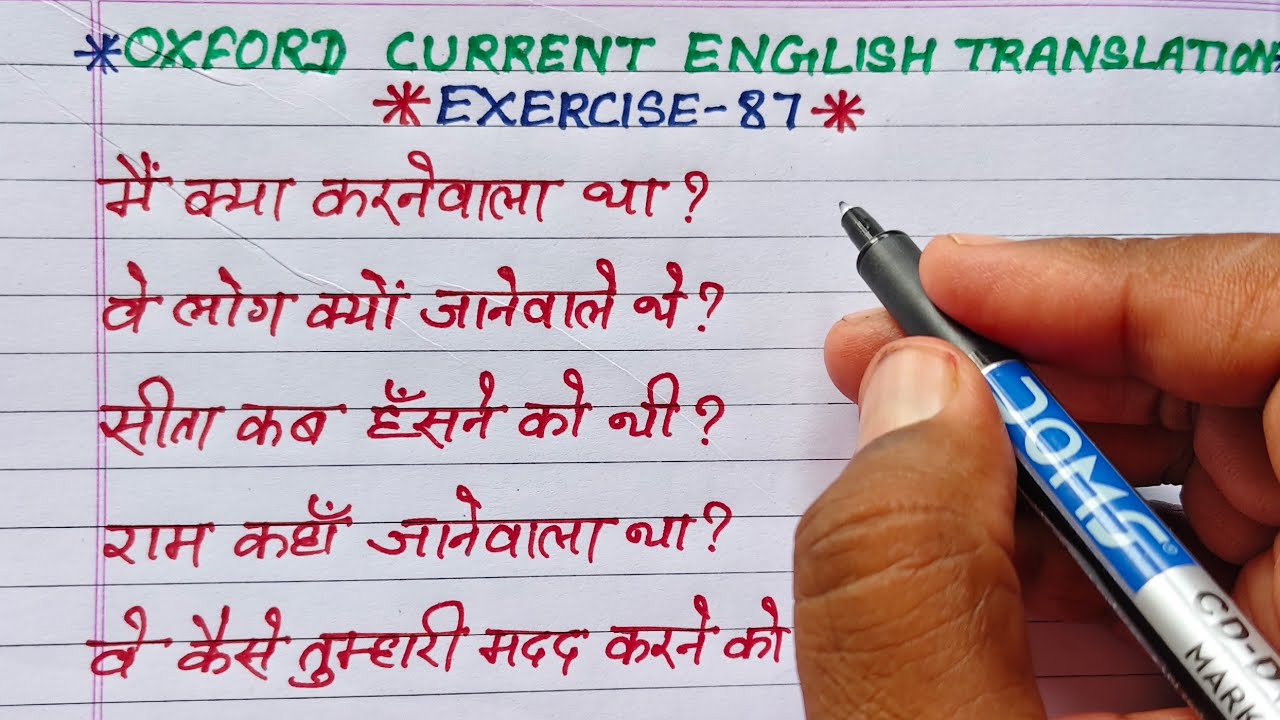 *OXFORD CURRENT ENGLISH TRANSLATION*
*EXERCISE-87*
मैं क्या करनेवाला था?
वे लोग क्यों जानेवाले थे?
सीता कब हँसने को थी?
राम कहाँ जानेवाला था?
वे कैसे तुम्हारी मदद करने को
DOMS
CD-D
MARK